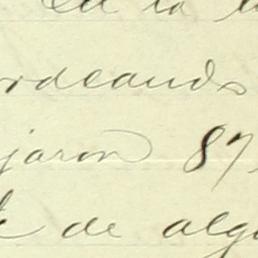 en la
rdeando
jaron 87
de alg